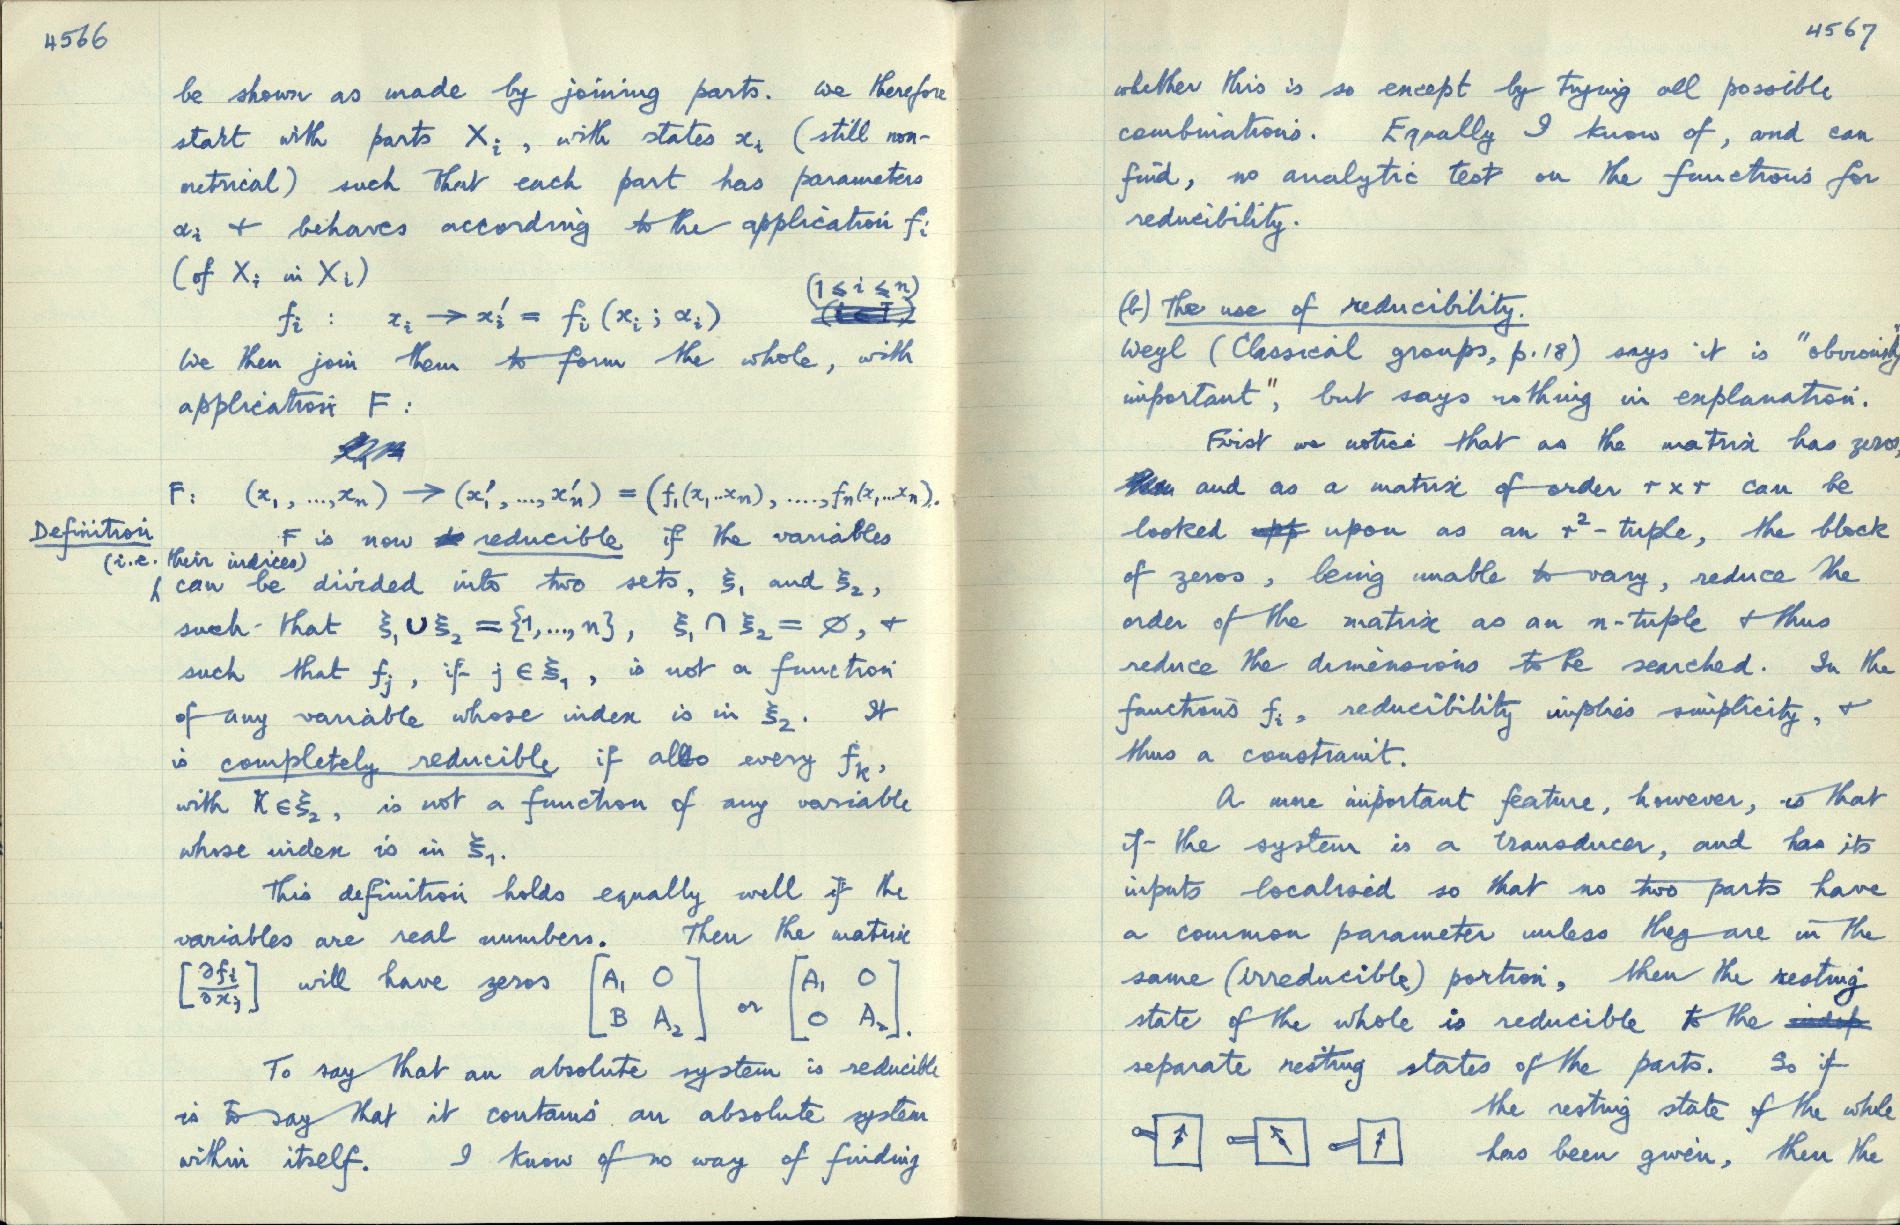 4566
be shown as made by joining parts. We therefore
start with parts Xi, with states xi (still non-
metrical) such that each part has parameters
αi + behaves according to the application fi
(of Xi in Xi)
(1 ≤ i ≤ n)
fi : xi → xi' = fi (xi; αi)
We then join them to form the whole, with
application F:
F: (x1, ..., xn) → (x1', ..., xn') = (f1(x1...xn), ...., fn(x1...xn)).
Definition
F is now reducible if the variables
(i.e. their indices)
can be divided into two sets, ξ1 and ξ2,
such that ξ1 ∪ ξ2 = {1, ..., n}, ξ1 ∩ ξ2 = ∅, +
such that fj, if j ∈ ξ1, is not a function
of any variable whose index is in ξ2. It
is completely reducible if also every fk,
with K ∈ ξ2, is not a function of any variable
whose index is in ξ1.
This definition holds equally well if the
variables are real numbers. Then the matrix
[∂fi/∂xj] will have zeros [A1 O / B A2] or [A1 O / O A2].
To say that an absolute system is reducible
is to say that it contains an absolute system
within itself. I know of no way of finding
4567
whether this is so except by trying all possible
combinations. Equally I know of, and can
find, no analytic test on the functions for
reducibility.
(b) The use of reducibility.
Weyl (Classical groups, p.18) says it is "obviously
important", but says nothing in explanation.
First we notice that as the matrix has zeros,
and as a matrix of order r x r can be
looked upon as an r²-tuple, the block
of zeros, being unable to vary, reduce the
order of the matrix as an n-tuple + thus
reduce the dimensions to be searched. In the
functions fi, reducibility implies simplicity, +
thus a constraint.
A more important feature, however, is that
if the system is a transducer, and has its
inputs localised so that no two parts have
a common parameter unless they are in the
same (irreducible) portion, then the resting
state of the whole is reducible to the
separate resting states of the parts. So if
the resting state of the whole
has been given, then the